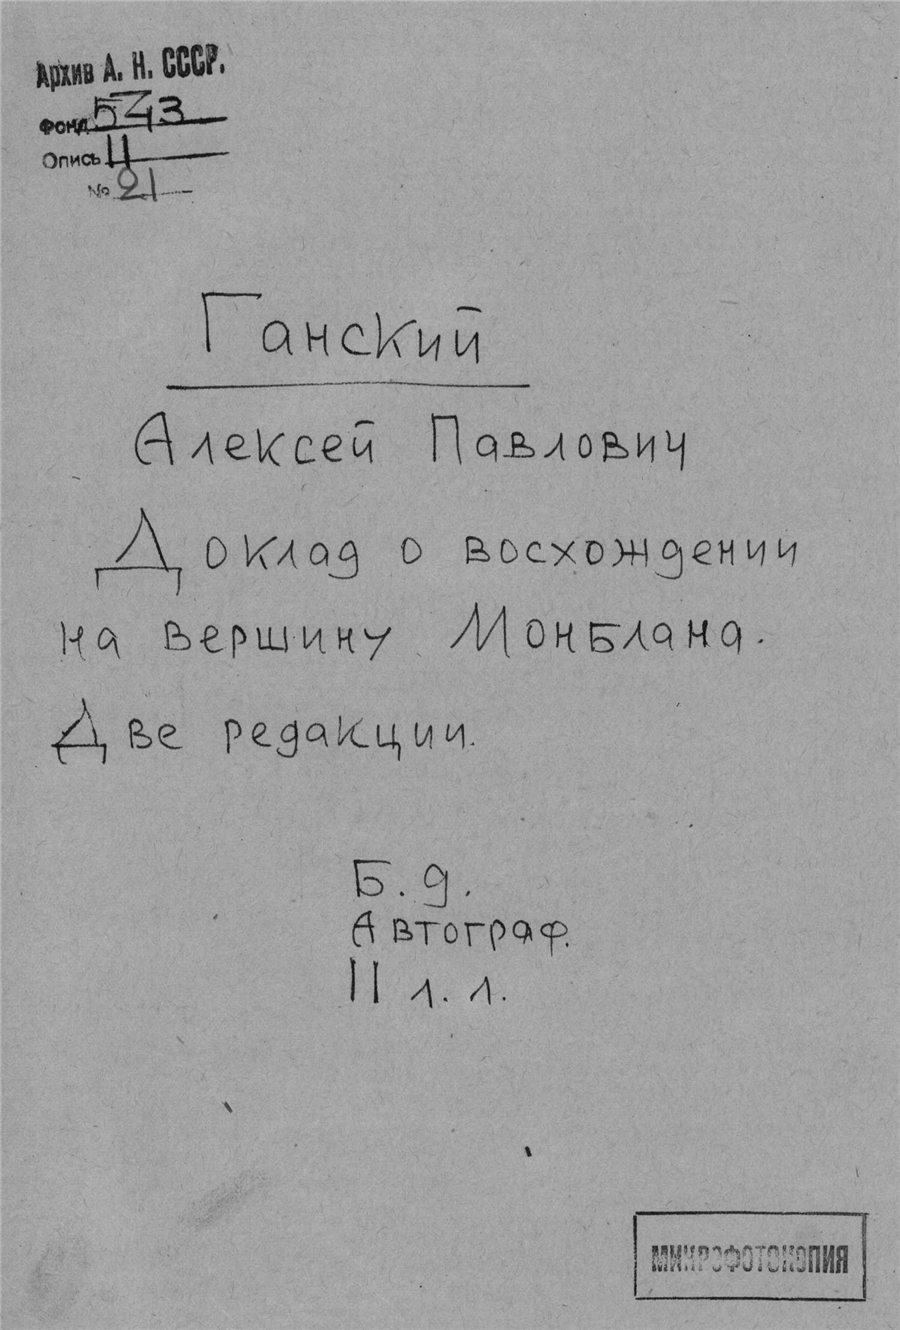 Архив А. Н. СССР.
Фонд 543
Опись II
№ 21
Ганский
Алексей Павлович
Доклад о восхождении
на вершину Монблана.
Две редакции.
Б. д.
Автограф.
11 л. л.
МИКРОФОТОКОПИЯ